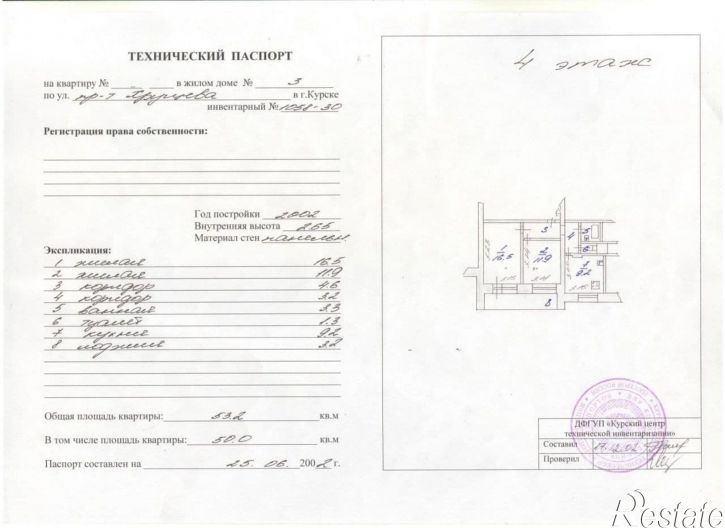 ТЕХНИЧЕСКИЙ ПАСПОРТ
на квартиру № - в жилом доме № 3
по ул. пр-т Хрущева в г.Курске
инвентарный № 1058-30
Регистрация права собственности:
Год постройки 2002
Внутренняя высота 265
Материал стен панельн.
Экспликация:
1 жилая 16.5
2 жилая 11.9
3 коридор 4.6
4 коридор 3.2
5 ванная 3.3
6 туалет 1.3
7 кухня 9.2
8 лоджия 3.2
Общая площадь квартиры: 53.2 кв.м
В том числе площадь квартиры: 50.0 кв.м
Паспорт составлен на 25.06. 2002 г.
4 этаж
1
16,5
2
11.9
3
4
5
7
9.2
8
ДФГУП «Курский центр
технической инвентаризации»
Составил 17.12.02
Проверил
Restate